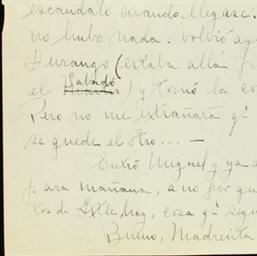 escandalo cuando llegase.
no hubo nada: volvió ay
Durango (estaba allá
el Sábado) y tomó la co
Pero no me extrañará q̄
se quede el otro... —
Entró Miguel y ya
para mañana, a no ser que
tos de hoy, cosa q̄ segu
Bueno, Madrecita